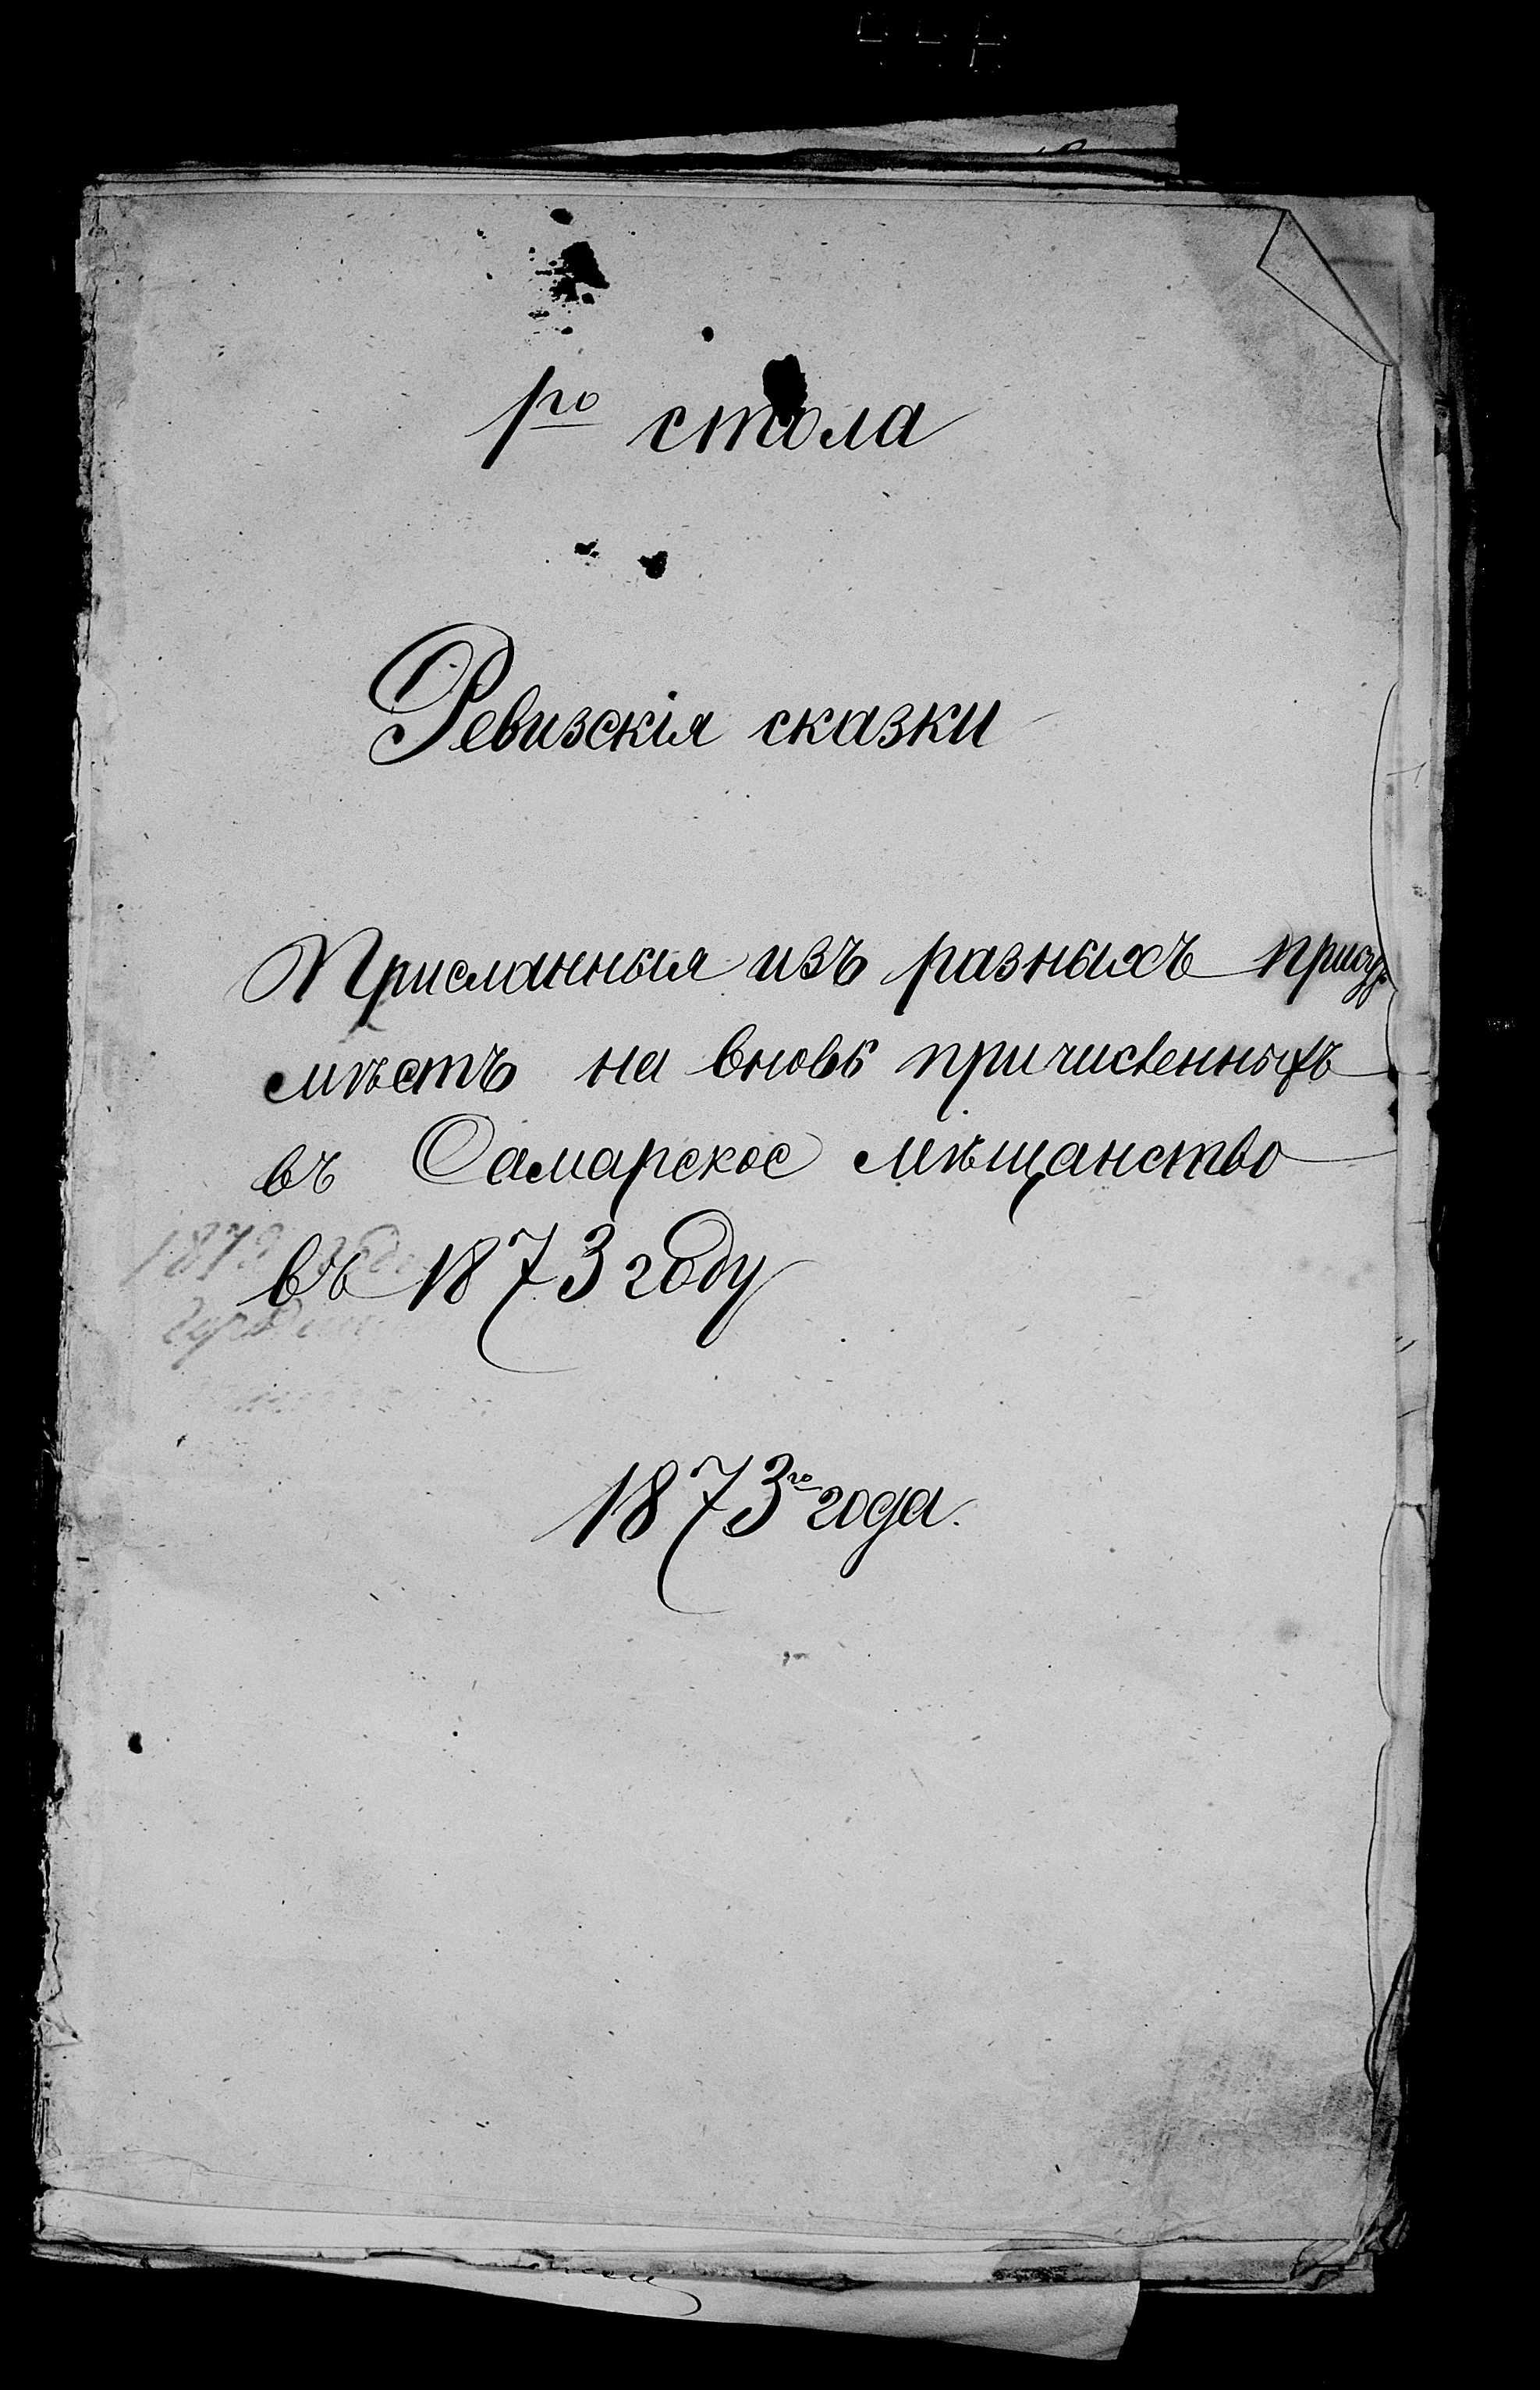 1го стола
Ревизскія сказки
Присланныя изъ разныхъ присут.
мѣстъ на вновь причисленныхъ
въ Самарское мѣщанство
въ 1873 году
1873го года.